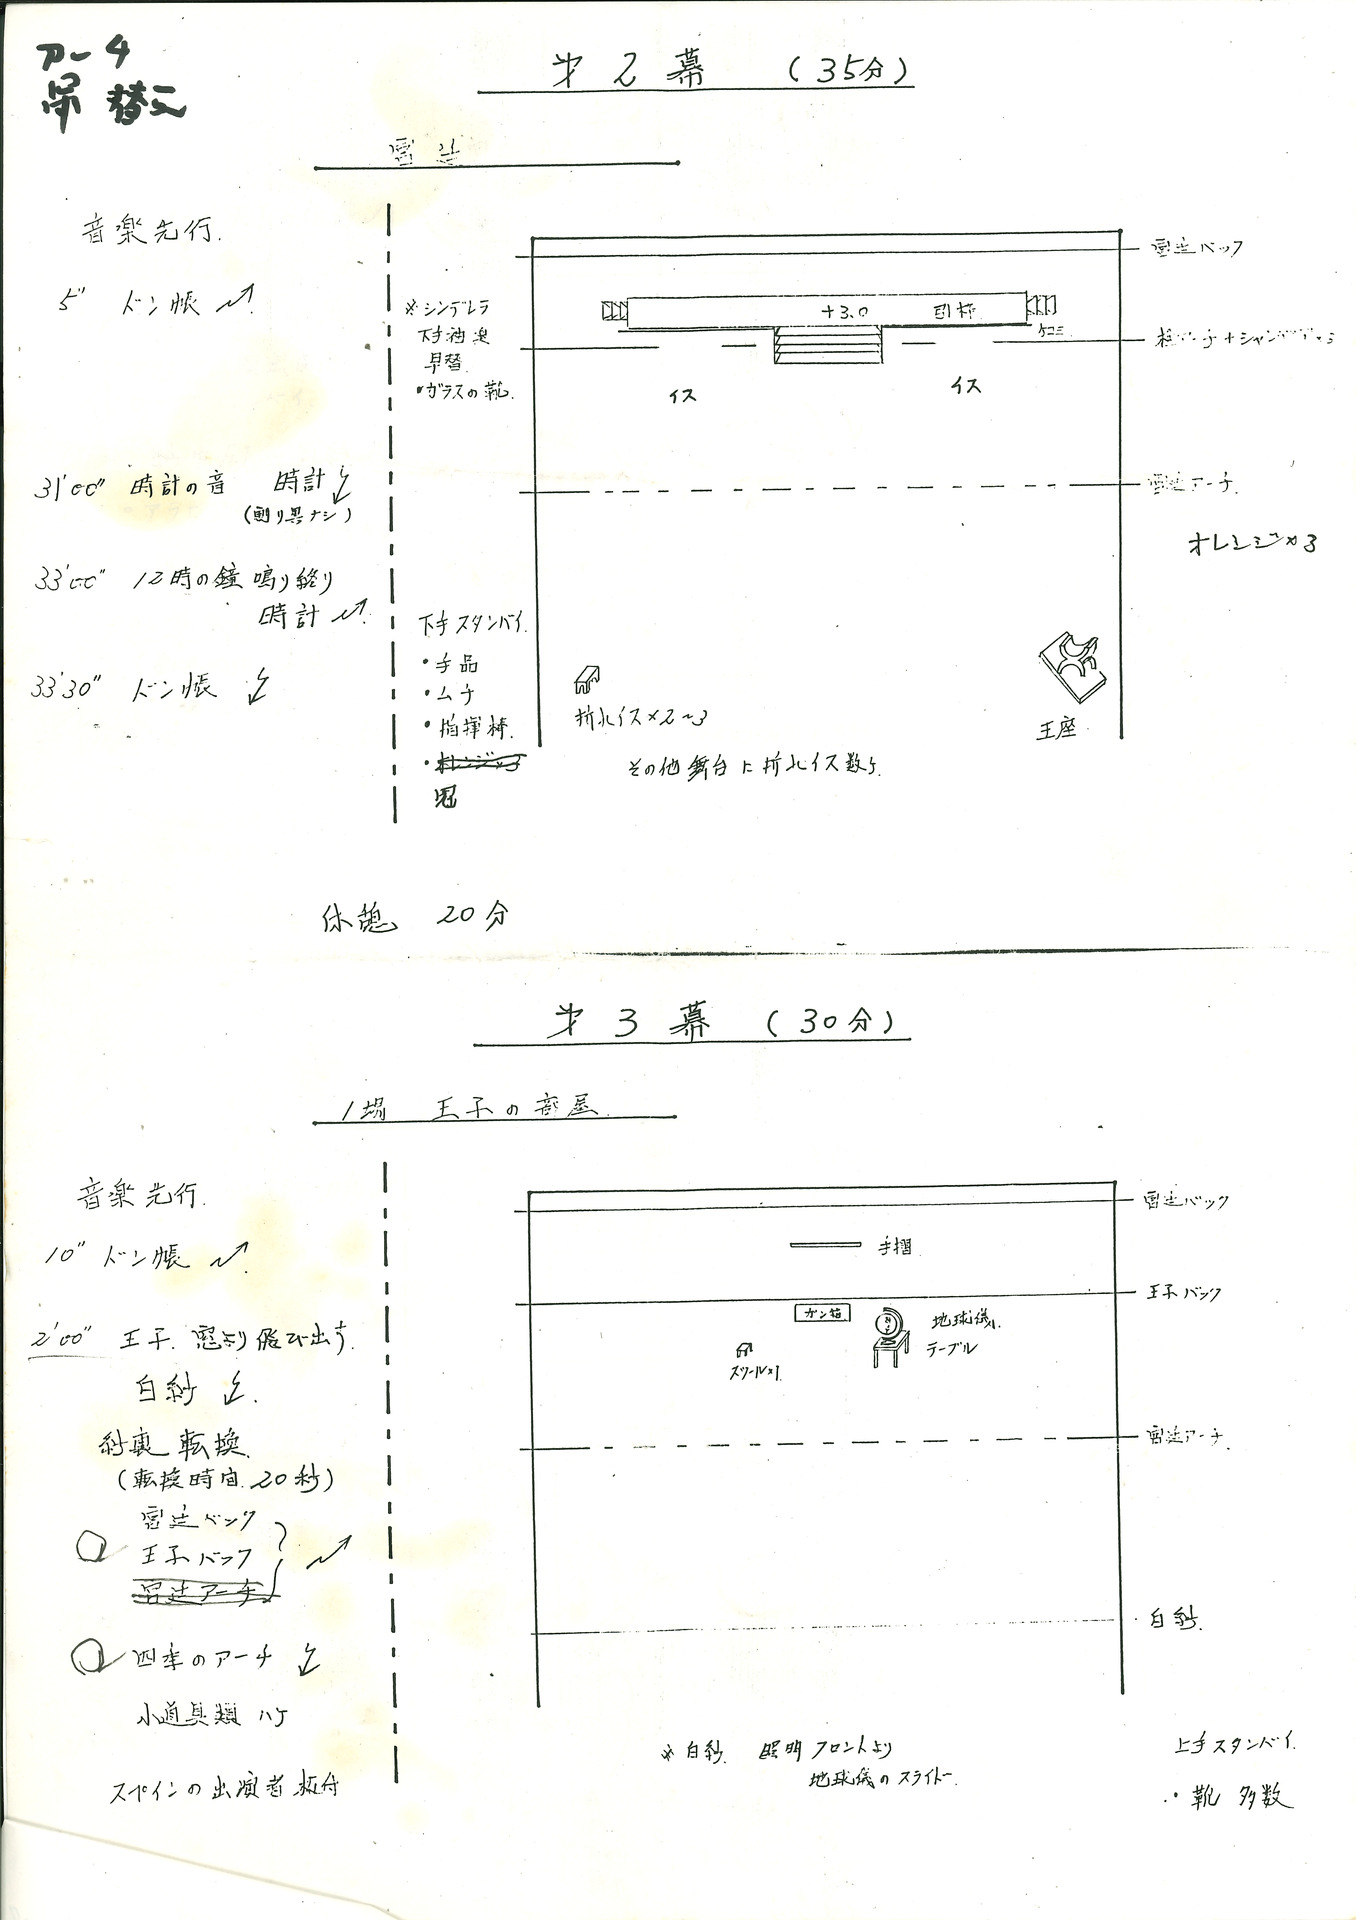 アーチ
吊替え
第2幕 (35分)
音楽先行.
5" ドン帳
※シンデレラ
下手袖奥
早替
・ガラスの靴.
宮廷バック
+3.0
ケコミ
イス
イス
31'00" 時計の音 時計
宮廷アーチ.
オレンジ×3
33'00" 12時の鐘鳴り終り
時計
33'30" ドン帳
下手スタンバイ.
・手品
・ムチ
・指揮棒.
・オレンジ×3
冠
折れイス×2〜3
王座
その他舞台に折れイス数ケ.
休憩 20分
第3幕 (30分)
1場 王子の部屋
音楽先行.
10" ドン帳
2'00" 王子.窓より飛び出す.
白紗
紗裏転換.
(転換時間.20秒)
宮廷バック
王子バック
宮廷アーチ
四季のアーチ
小道具類 ハケ
スペインの出演者板付
宮廷バック
手摺
王子バック
ガン箱
地球儀
テーブル
スツール×1.
宮廷アーチ.
白紗.
※白紗. 照明フロントより
地球儀のスライド.
上手スタンバイ.
・靴 多数